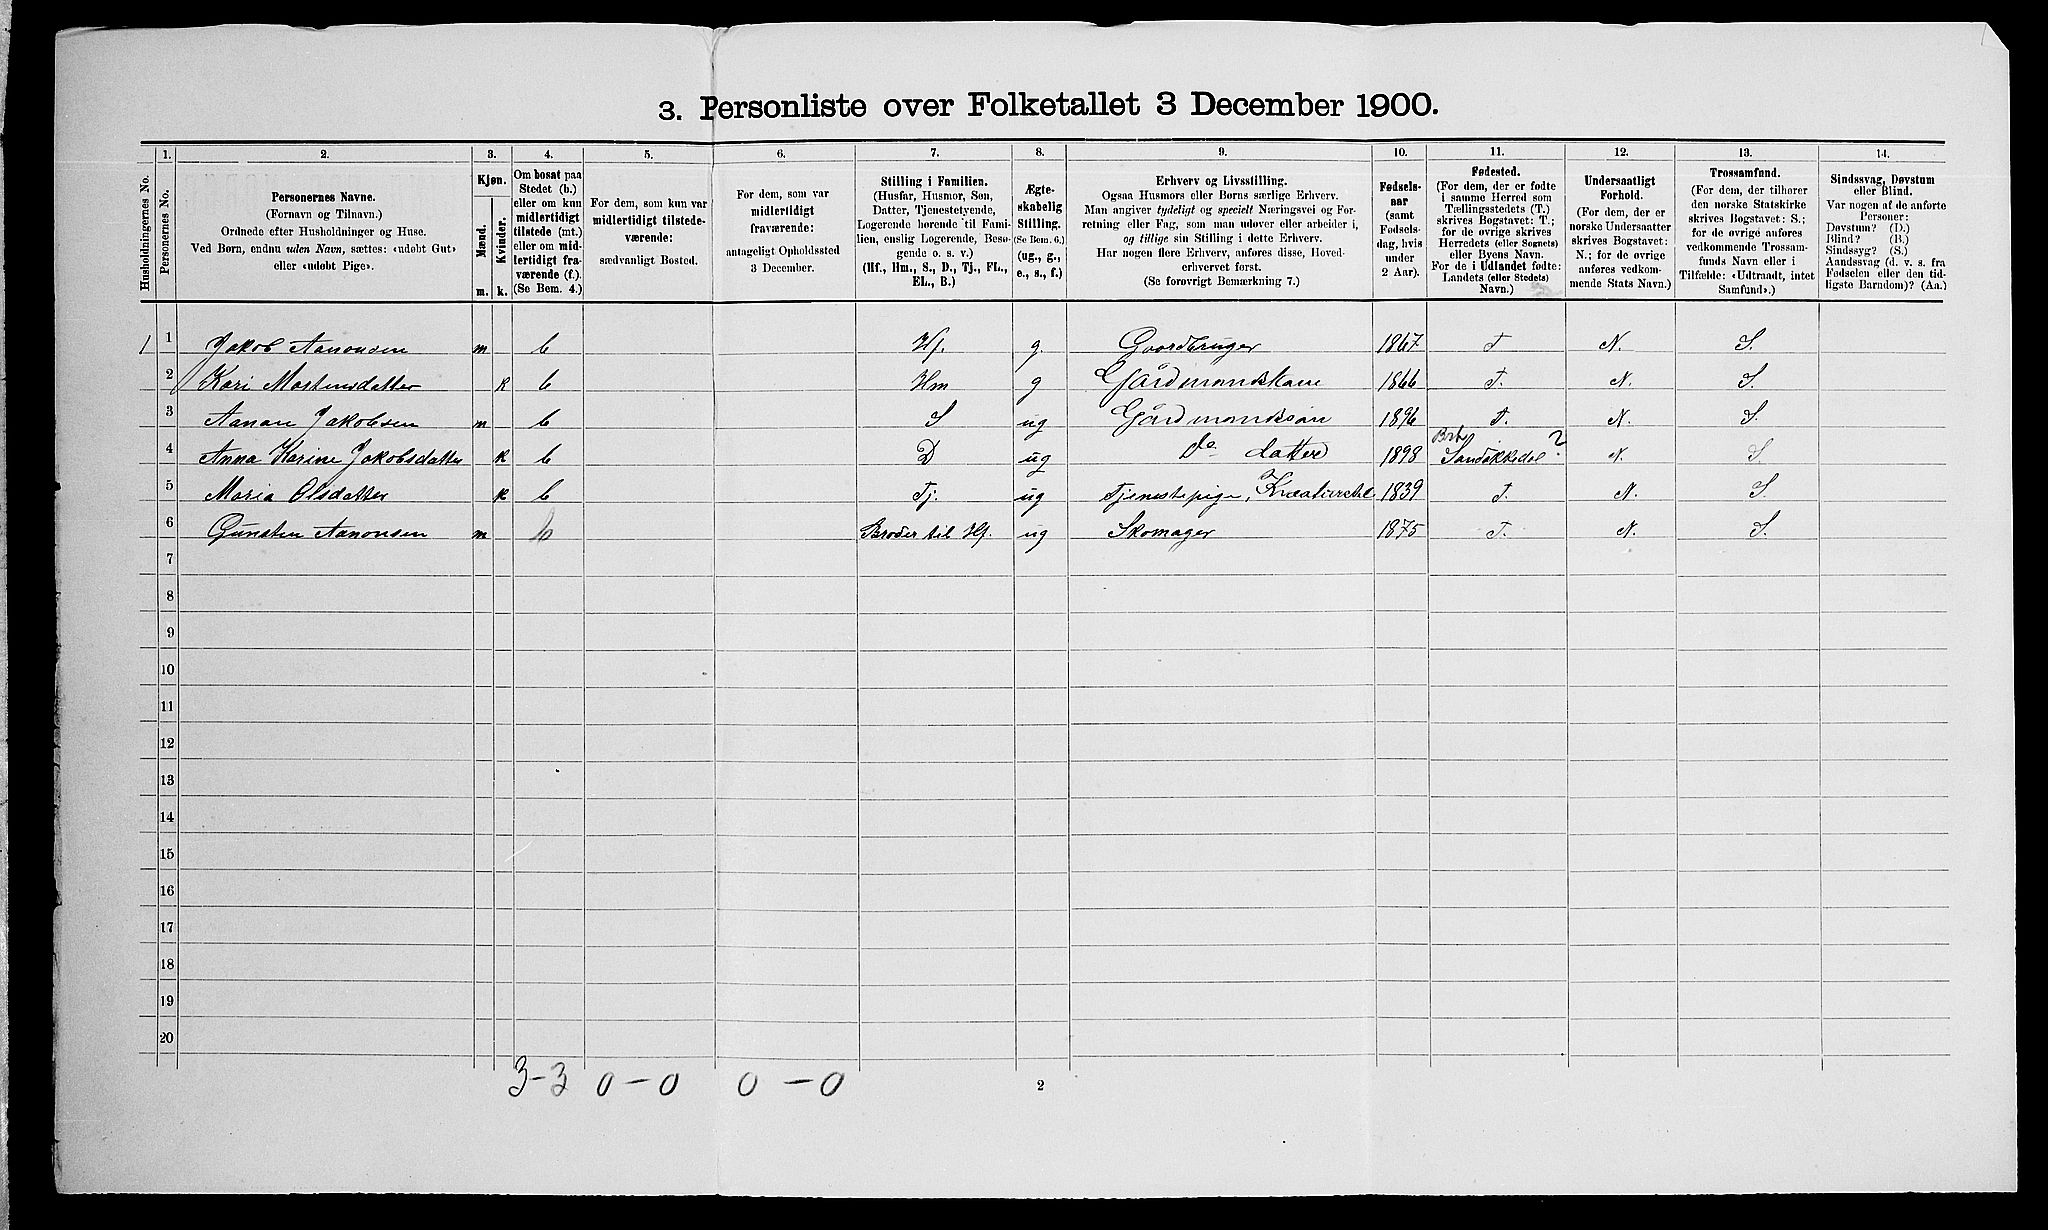 3. Personliste over Folketallet 3 December 1900.
Husholdningernes No.
1.
Personernes No.
2.
Personernes Navne.
(Fornavn og Tilnavn.)
Ordnede efter Husholdninger og Huse.
Ved Børn, endnu uden Navn, sættes: «udøbt Gut»
eller «udøbt Pige».
3.
Kjøn.
Mænd.
Kvinder.
m. k.
4.
Om bosat paa
Stedet (b.)
eller om kun
midlertidigt
tilstede (mt.)
eller om mid-
lertidigt fra-
værende (f.).
(Se Bem. 4.)
5.
For dem, som kun var
midlertidigt tilstede-
værende:
sædvanligt Bosted.
6.
For dem, som var
midlertidigt
fraværende:
antageligt Opholdssted
3 December.
7.
Stilling i Familien.
(Husfar, Husmor, Søn,
Datter, Tjenestetyende,
Logerende hørende til Fami-
lien, enslig Logerende, Besø-
gende o. s. v.)
(Hf., Hm., S., D., Tj., FL.,
EL., B.)
8.
Ægte-
skabelig
Stilling.
(Se Bem. 6.)
(ug., g.,
e., s., f.)
9.
Erhverv og Livsstilling.
Ogsaa Husmors eller Børns særlige Erhverv.
Man angiver tydeligt og specielt Næringsvei og For-
retning eller Fag, som man udøver eller arbeider i,
og tillige sin Stilling i dette Erhverv.
Har nogen flere Erhverv, anføres disse, Hoved-
erhvervet først.
(Se forøvrigt Bemærkning 7.)
10.
Fødsels-
aar
(samt
Fødsels-
dag, hvis
under
2 Aar).
11.
Fødested.
(For dem, der er fødte
i samme Herred som
Tællingsstedets (T.)
skrives Bogstavet: T.;
for de øvrige skrives
Herredets (eller Sognets)
eller Byens Navn.
For de i Udlandet fødte:
Landets (eller Stedets)
Navn.)
12.
Undersaatligt
Forhold.
(For dem, der er
norske Undersaatter
skrives Bogstavet:
N.; for de øvrige
anføres vedkom-
mende Stats Navn.)
13.
Trossamfund.
(For dem, der tilhører
den norske Statskirke
skrives Bogstavet: S.;
for de øvrige anføres
vedkommende Trossam-
funds Navn eller i
Tilfælde: «Udtraadt, intet
Samfund».)
14.
Sindssvag, Døvstum
eller Blind.
Var nogen af de anførte
Personer:
Døvstum? (D.)
Blind? (B.)
Sindssyg? (S.)
Aandssvag (d. v. s. fra
Fødselen eller den tid-
ligste Barndom)? (Aa.)
1 1 Jakob Aanonsen m b Hf. g. Gaardbruger 1867 T N. S.
2 Kari Mortensdatter k b Hm g Gårdmandskone 1866 T. N. S.
3 Aanon Jakobsen m b S ug Gårdmandssøn 1896 T. N. S.
4 Anna Karine Jakobsdatter k b D ug Do datter 1898 Sandøkkedal ? N. S
5 Maria Olsdatter k b Tj. ug Tjenestepige, Kreaturstel 1839 T. N. S
6 Gunsten Aanonsen m b Broder til Hf. ug Skomager 1875 T. N. S.
7
8
9
10
11
12
13
14
15
16
17
18
19
20
3-3 0-0 0-0
2